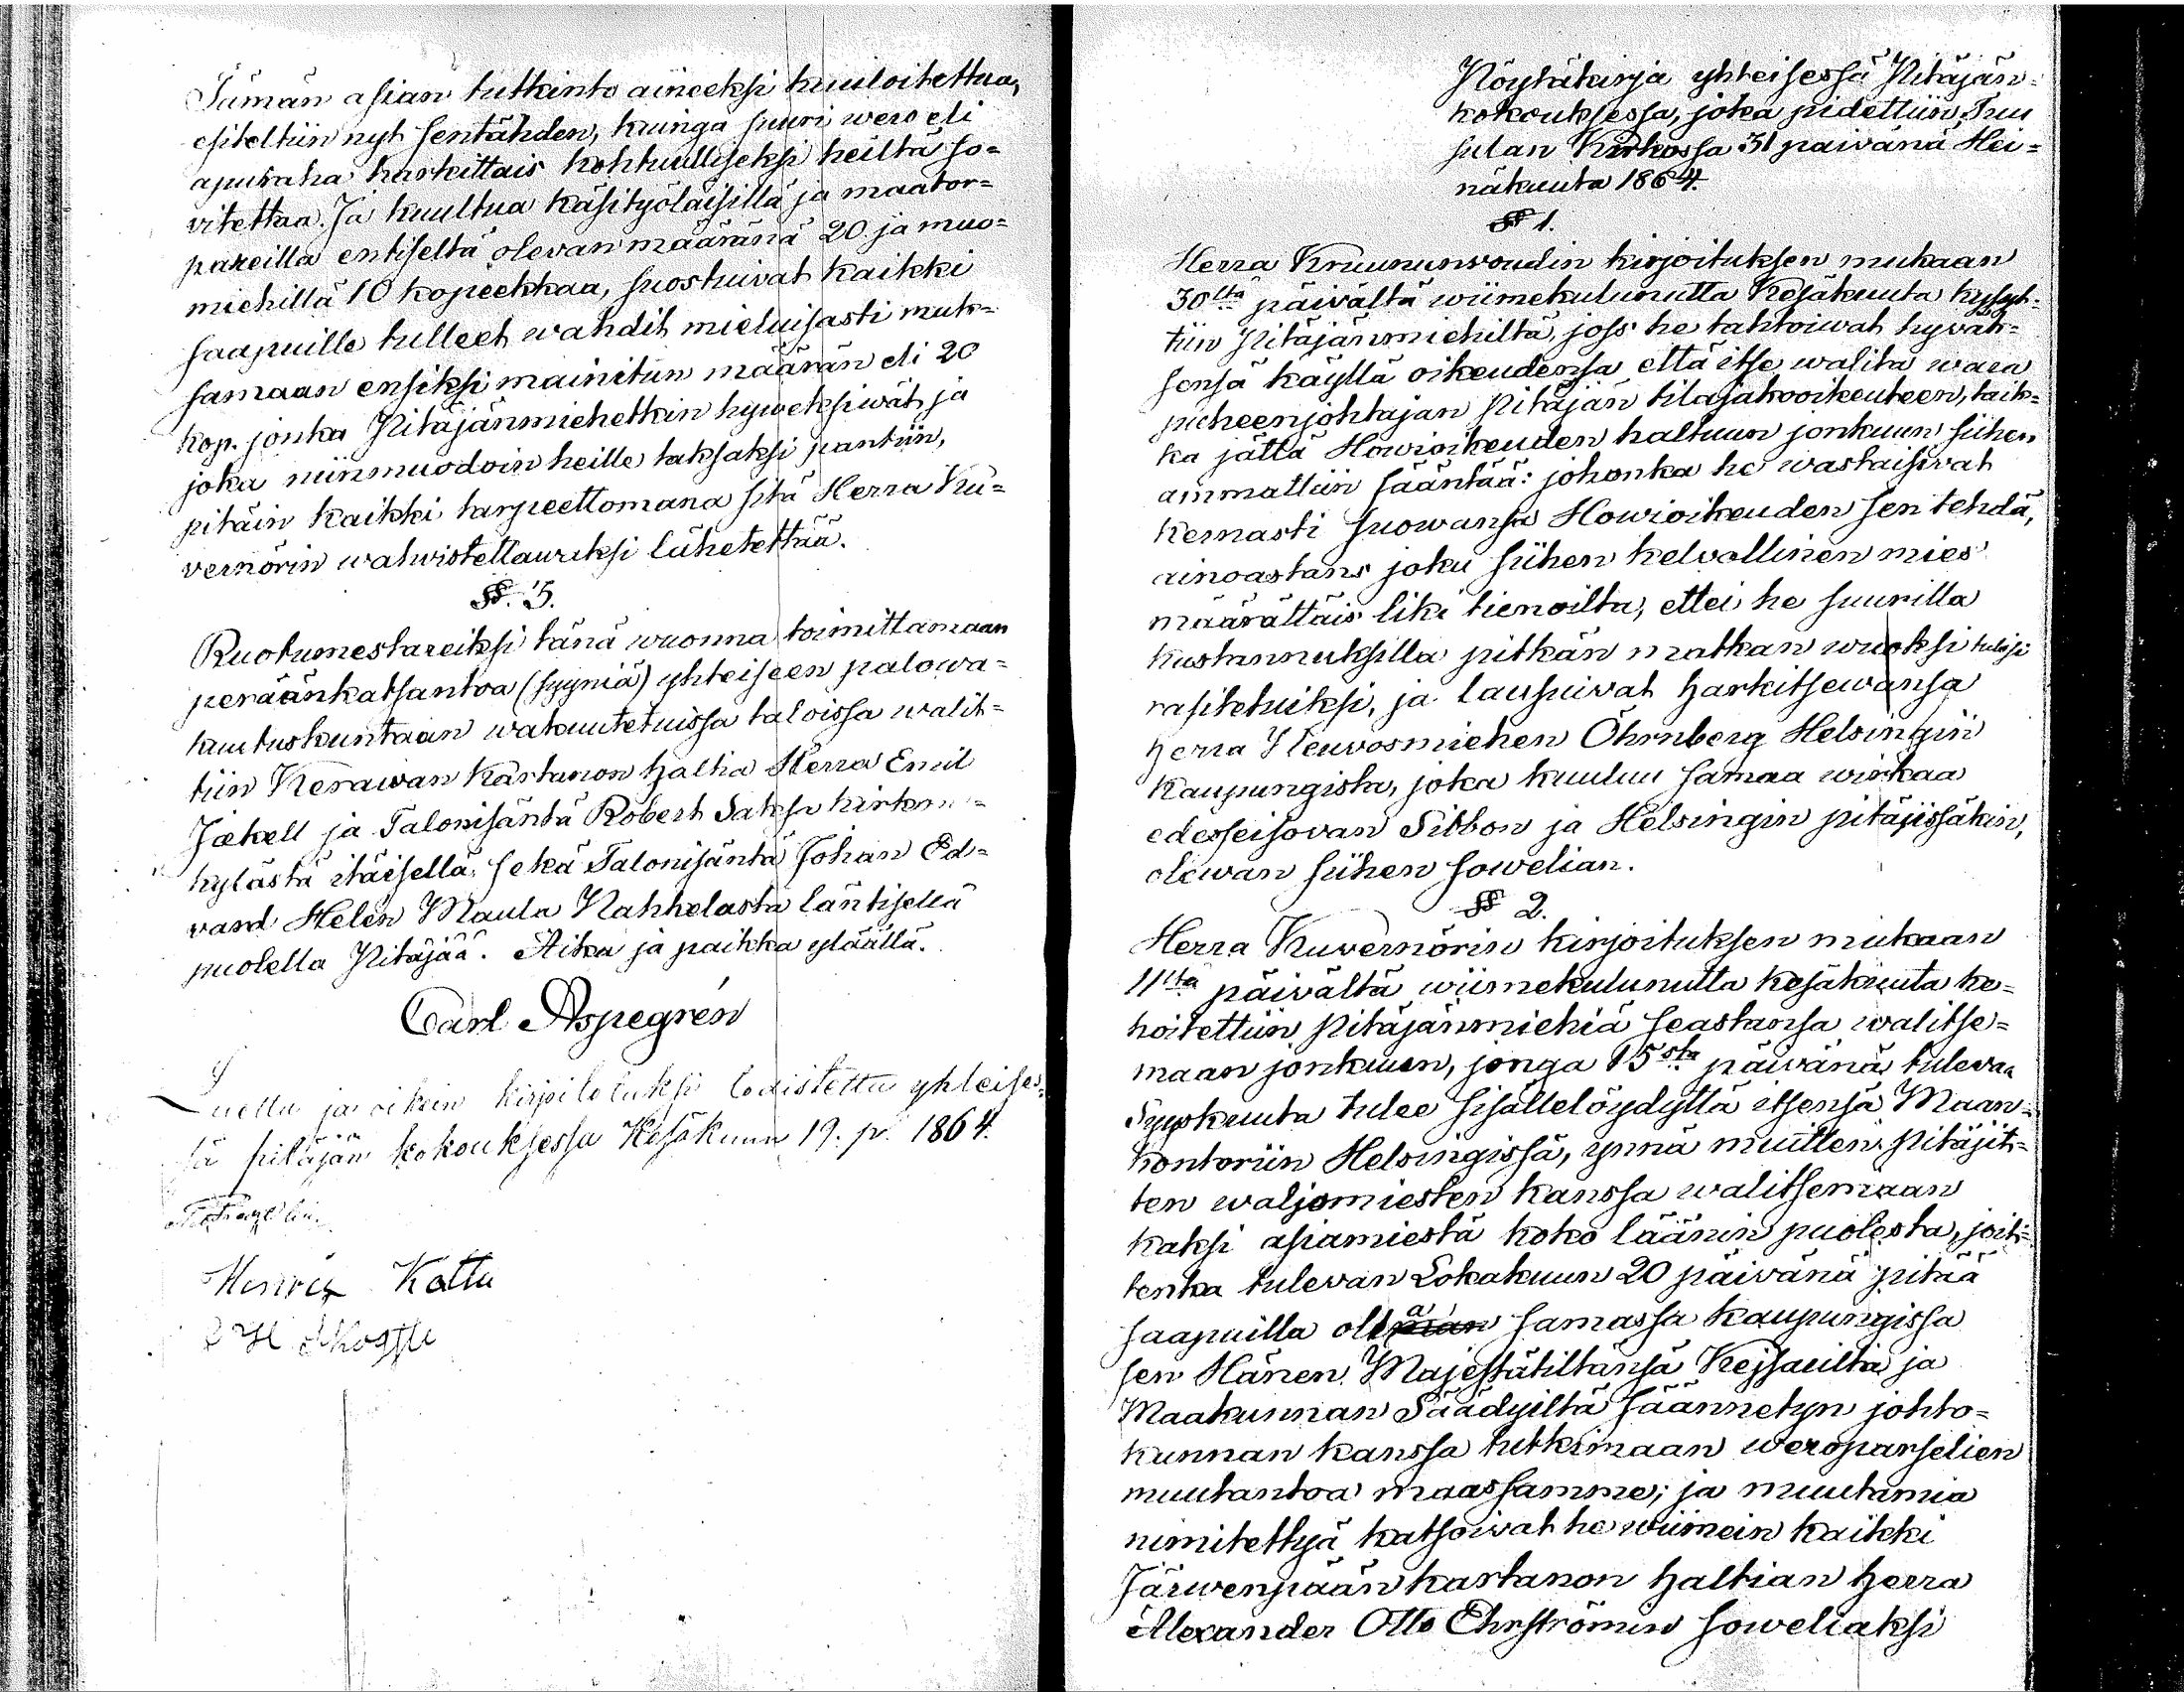 Tämän asian tutkinto aineeksi kuuloitettua,
esiteltiin nyt sentähden, kuinga suuri wero eli
apuraha harkittais kohtuulliseksi heiltä so=
vitettaa. Ja kuultua käsityöläisillä ja maator=
pareilla entiseltä olevan määränä 20 ja muo=
miehillä 10 kopeekkaa, suostuivat kaikki
saapuille tulleet wahdit mieluisasti mak=
samaan ensiksi mainitun määrän eli 20
kop. jonka Pitäjänmiehetkin hyweksiwät, ja
joka niinmuodoin heille taksaksi pantiin,
pitäin kaikki tarpeettomana sitä Herra Ku=
vernörin wahwistettawaksi lähetettää.
§§. 5.
Ruotumestareiksi tänä wuonna toimittamaan
peräänkatsantoa (syyniä) yhteiseen palowa=
kuutuskuntaan wakuutetuissa taloissa walit=
tiin Kerawan Kartanon haltia Herra Emil
Jækell ja Talonisäntä Robert Saksa kirkon=
kylästä itäisellä, sekä Talonisäntä Johan Ed=
vard Helen Maula Nahkelasta läntisellä
puolella Pitäjää. Aika ja paikka ylläällä.
Carl Aspegrén
Luettu ja oikein kirjoitetuksi todistettu yhteises=
sä pitäjän kokouksessa Kesäkuun 19. p. 1864.
Henric Kottu
Pöytäkirja yhteisessä Pitäjän=
kokouksessa, joka pidettiin Tuu
sulan Kirkossa 31 päivänä Hei=
näkuuta 1864.
§§ 1.
Herra Kruununvoudin kirjoituksen mukaan
30lta päivältä wiimekulunutta Kesäkuuta kysyt=
tiin Pitäjänmiehiltä, joss he tahtoiwat hyväk=
sensä käyttä oikeudensa että itse walita wara
puheenjohtajan Pitäjän tilajakooikeuteen, taik=
ka jättä Howioikeuden haltuun jonkuun siihen
ammattiin sääntää: johonka he wastaisivat
kernasti suowansa Howioikeuden sen tehdä,
ainoastans joku siihen kelvollinen mies
määrättäis liki tienoilta, ettei he suurilla
kustannuksilla pitkän matkan wuoksi tulisi
rasitetuiksi, ja lausuivat harkitsewansa
herra Neuvosmiehen Öhrnberg Helsingin
Kaupungista, joka kuuluu samaa wirkaa
edesseisovan Sibbon ja Helsingin pitäjissäkin,
olewan siihen sowelian.
§§ 2.
Herra Kuvernörin kirjoituksen mukaan
11ltä päivältä wiimekulunutta kesäkuuta ke=
hoitettiin Pitäjänmiehiä seastansa walitse=
maan jonkuun, jonga 15sta päivänä tulevaa
Syyskuuta tulee sisällelöydyttä itsensä Maan=
kontoriin Helsingissä, ynnä muitten Pitäjit=
ten waljomiesten kanssa walitsemaan
kaksi asiamiestä koko läänin puolesta, joit=
tenka tulevan Lokakuun 20 päivänä pitää
saapuilla olla samassa kaupungissa
sen Hänen Majestätiltänsä Keisarilta ja
Maakunnan Säädyiltä säännetyn johto=
kunnan kanssa tutkimaan weroparselien
muutantoa maassamme; ja muutamia
nimitettyä katsoivat he wiimein kaikki
Järwenpään kartanon haltian herra
Alexander Otto Ehrströmin soweliaksi